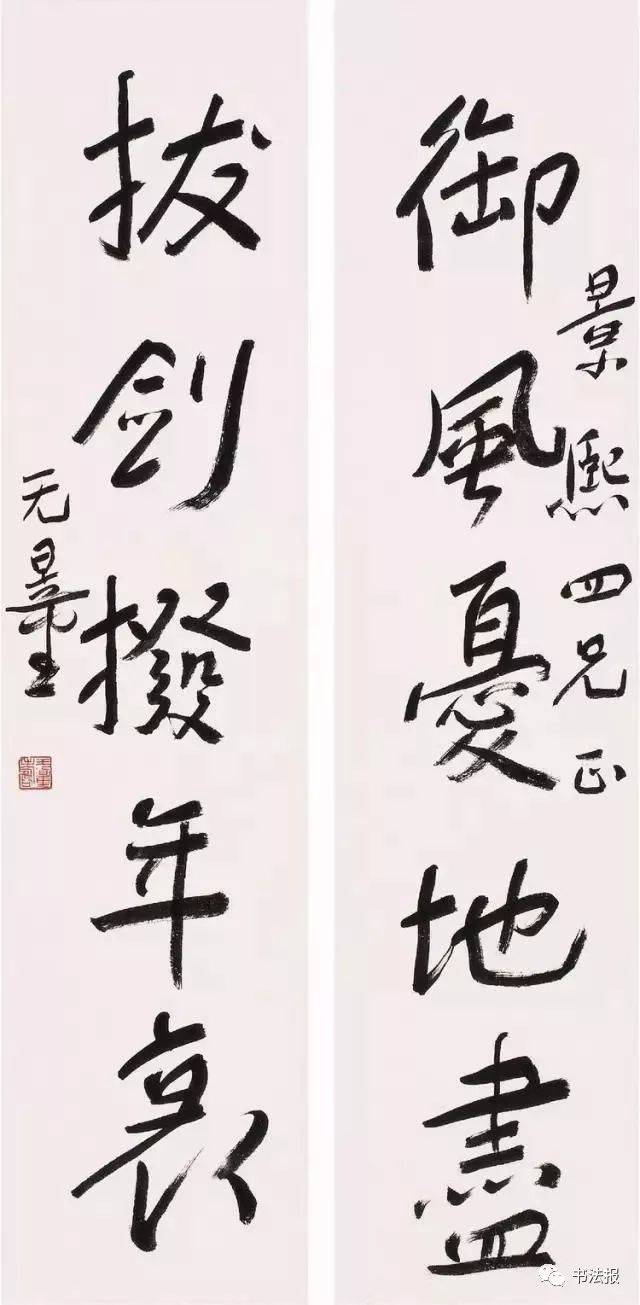 御風憂地盡
景熙四兄正
拔剑撥年衰
无量
书法报